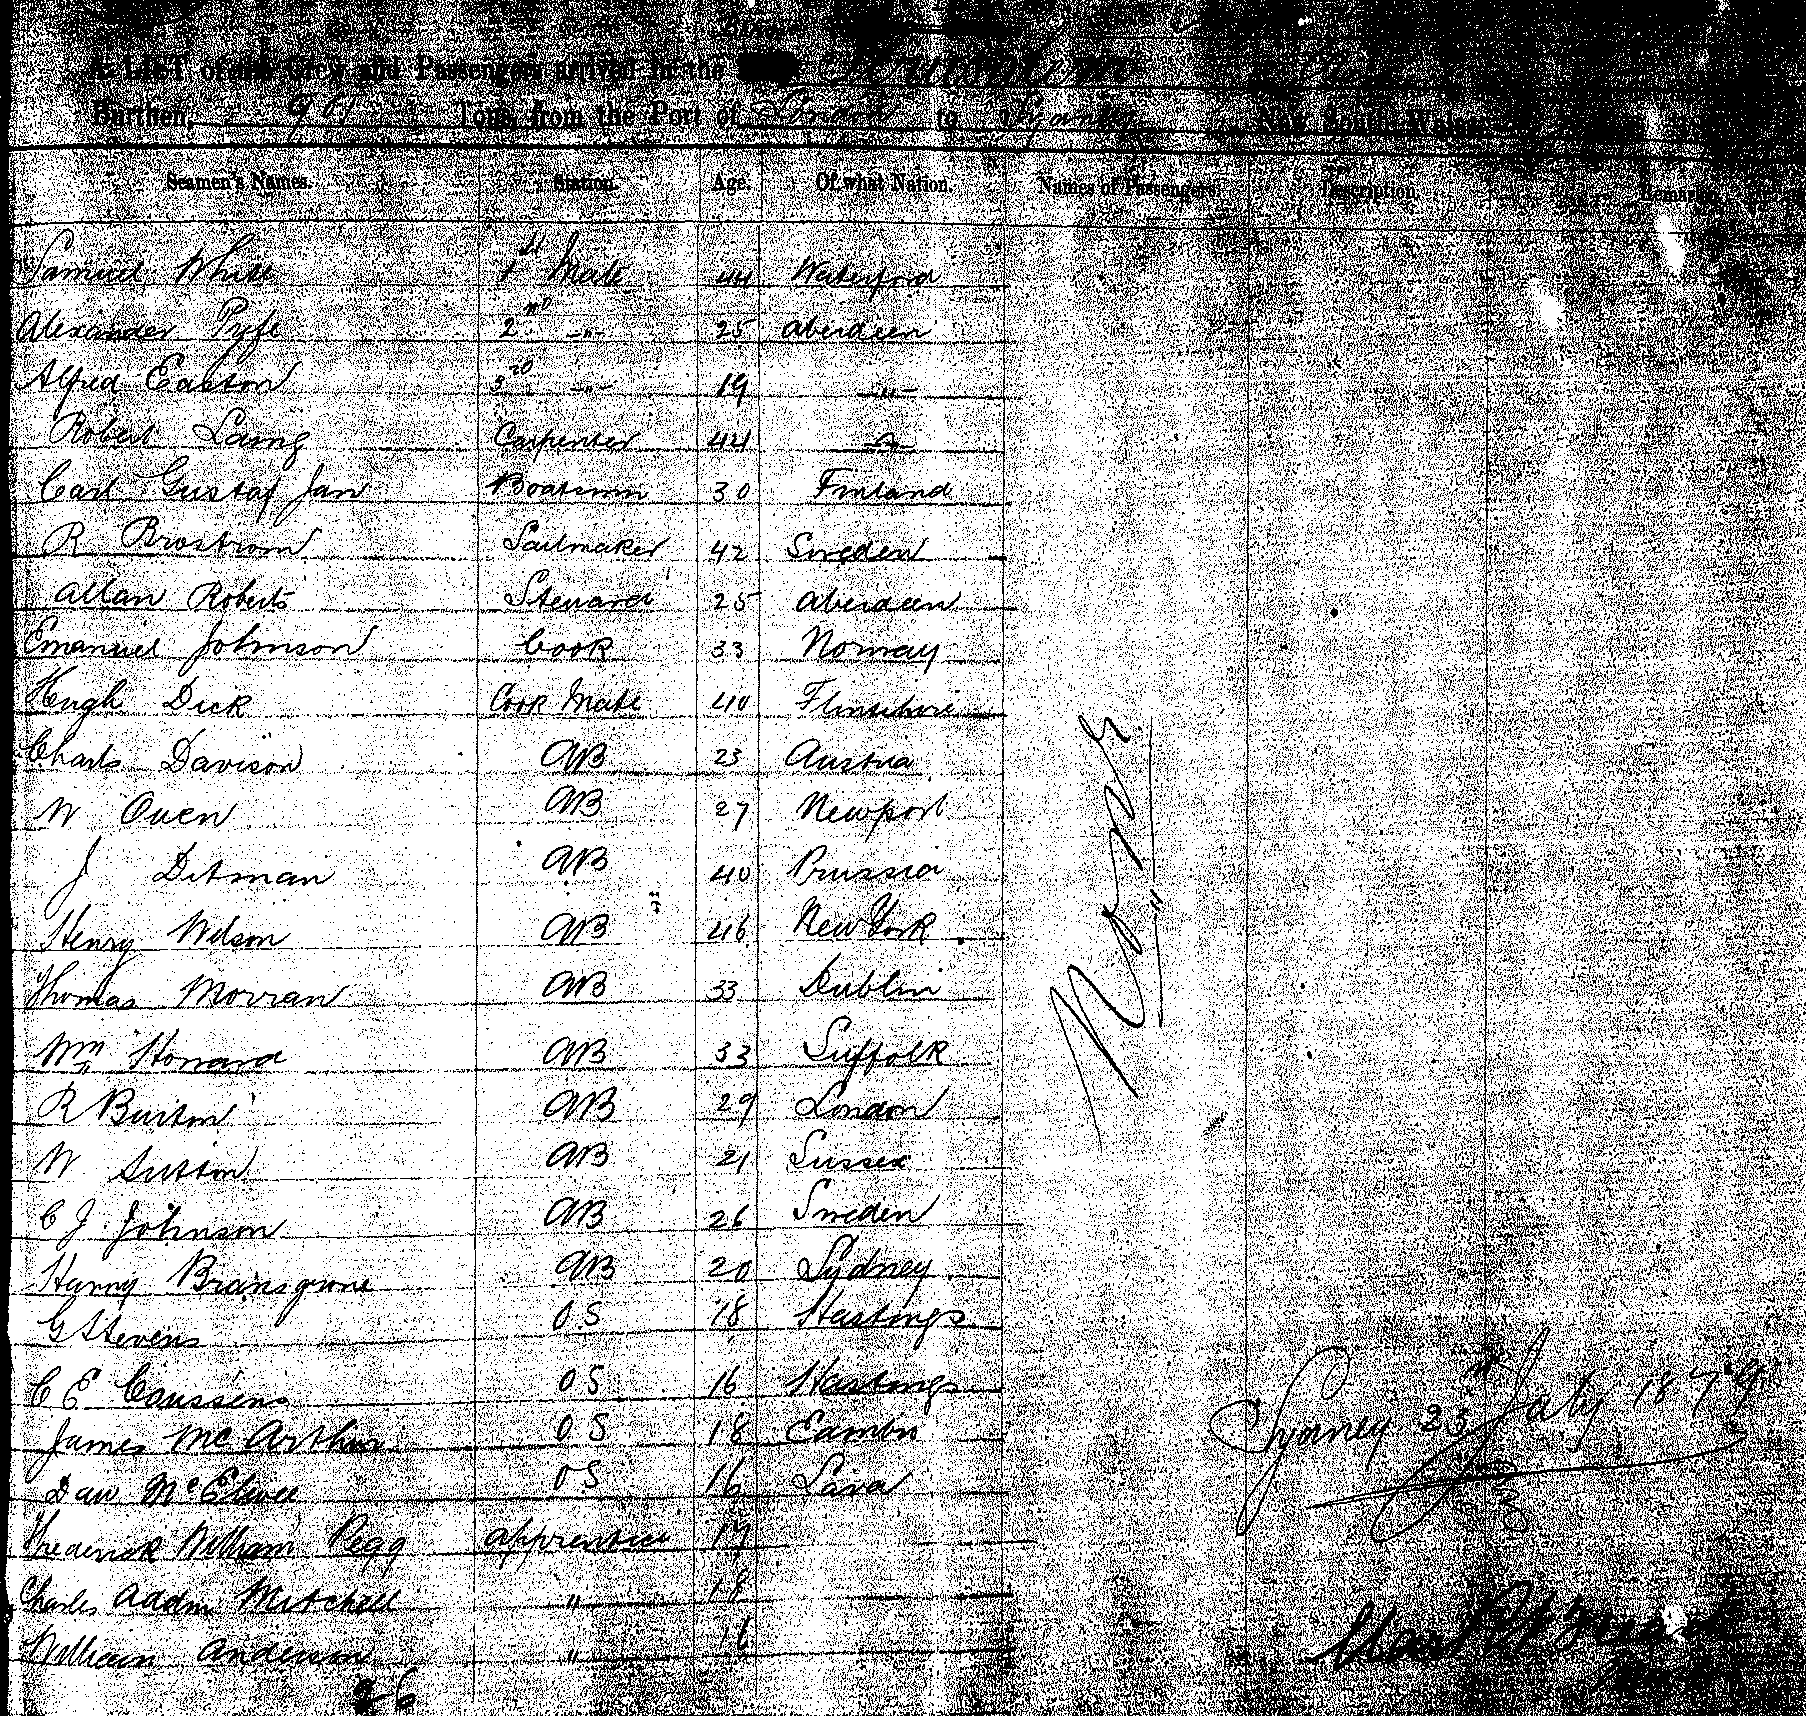 A LIST of the Crew and Passengers arrived in the
Burthen, Tons, from the Port of to Sydney New South Wales
Seamen's Names. Station. Age. Of what Nation. Names of Passengers. Description. Remarks
Samuel White 1st Mate 44 Waterford
Alexander Fyfe 2nd -"- 25 Aberdeen
Alfred Easton 3rd -"- 19 -"-
Robert Laing Carpenter 44 -"-
Carl Gustaf Jan Boatswn 30 Finland
R Brostrom Sailmaker 42 Sweden
Allan Roberts Steward 25 Aberdeen
Emanuel Johnson Cook 33 Norway
Hugh Dick Cook Mate 40 Flintshire
Charls Davison AB 23 Austria
W Owen AB 27 Newport
J Ditman AB 40 Prussia
Henry Wilson AB 46 New York
Thomas Morran AB 33 Dublin
Wm Howard AB 33 Suffolk
R Burton AB 29 London
W Sutton AB 21 Sussex
C J Johnson AB 26 Sweden
Harry Bransgrove AB 20 Sydney
G Stevens OS 18 Hastings
C E Coussens OS 16 Hastings
James McArthur OS 18
Dan OS 16
Frederick William Pegg apprentice 19
Charles Addm Mitchell " 18
William Anderson " 16
26
None
Sydney 23rd July 1879